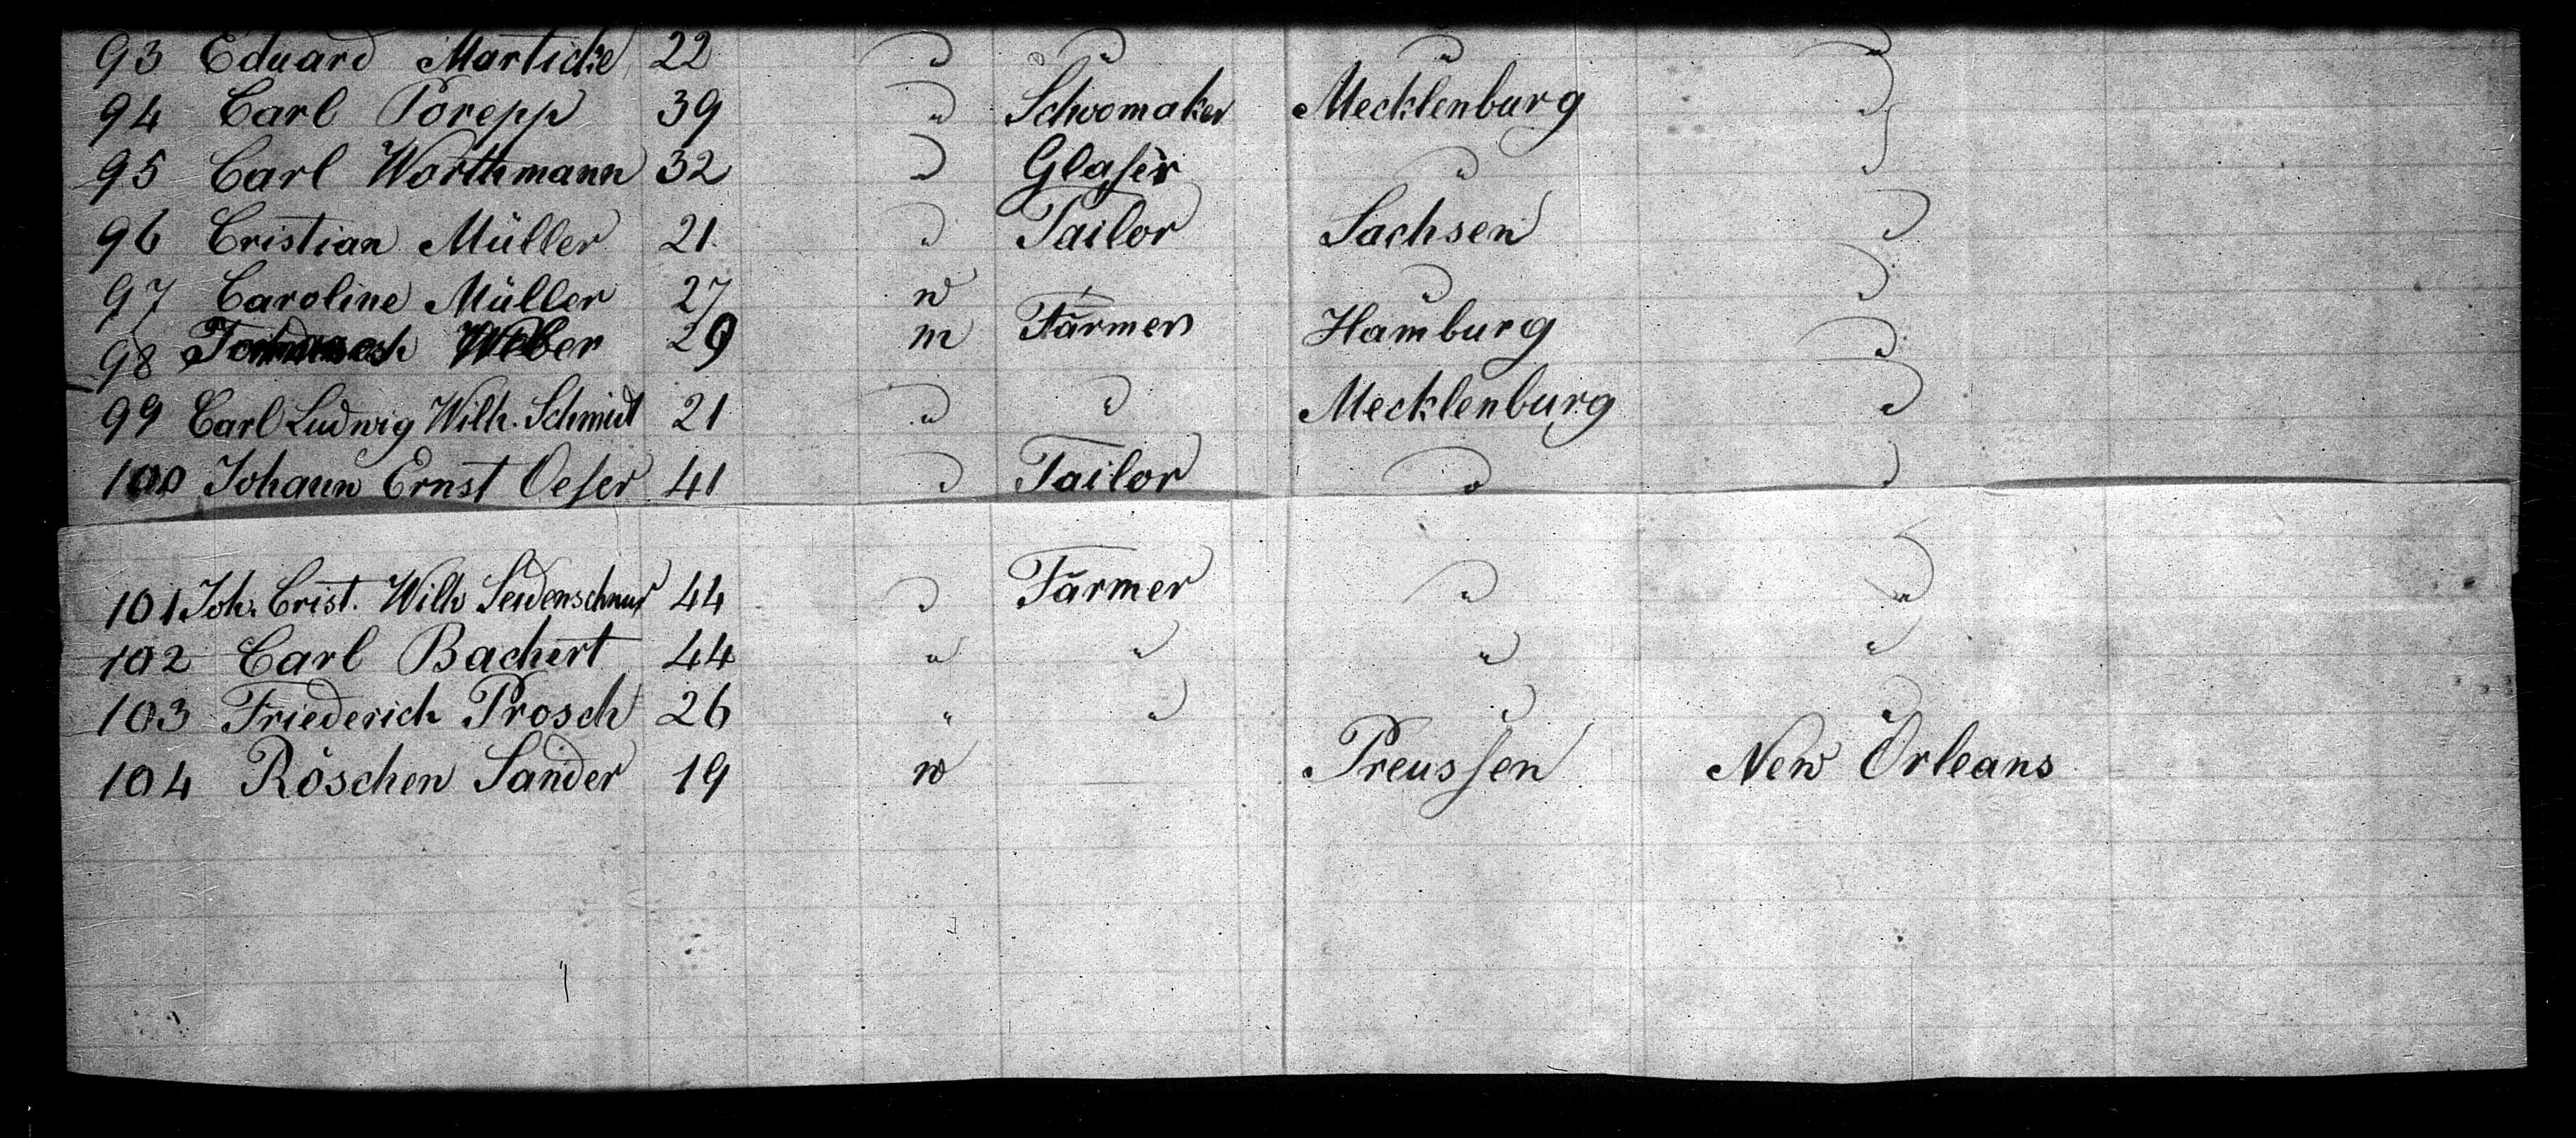 93 Eduard Marticke 22 " " " "
94 Carl Porepp 39 " Schoomaker Mecklenburg "
95 Carl Worthmann 32 " Glaser " "
96 Cristian Müller 21 " Tailor Sachsen "
97 Caroline Müller 27 w " "
98 Weber 29 m Farmer Hamburg "
99 Carl Ludwig Wilh. Schmidt 21 " " Mecklenburg "
100 Johann Ernst Oeser 41 " Tailor " "
101 Joh. Crist. Wilh Seidenschnur 44 " Farmer " "
102 Carl Bachert 44 " " " "
103 Friederich Prosch 26 " " " "
104 Röschen Sander 19 w — Preussen New Orleans